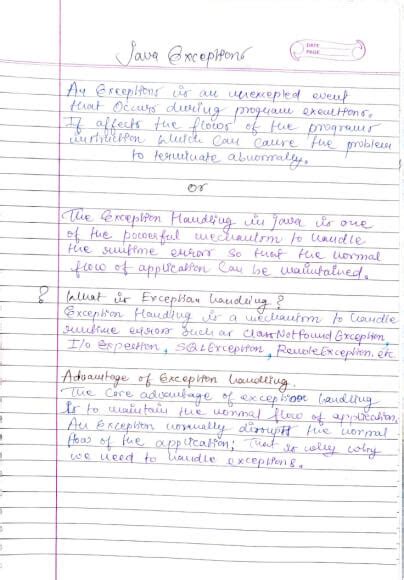 Java Exceptions
DATE
PAGE
An Exceptions is an unexcepted event
that Occurs during program executions.
If affects the flows of the programs
instruction which can cause the problem
to terminate abnormally.
or
The Exception Handling in java is one
of the powerful mechanism to handle
the runtime errors so that the normal
flow of application can be maintained.
? What is Exception handling?
Exception Handling is a mechanism to handle
runtime errors such as ClassNotFoundException,
I/o Expection, SQLException, RemoteException. etc.
Advantage of Exception handling.
The Core advantage of exception handling
is to maintain the normal flow of application.
An Exception normally disrupts the normal
flow of the application; That is why why
we need to handle exceptions.